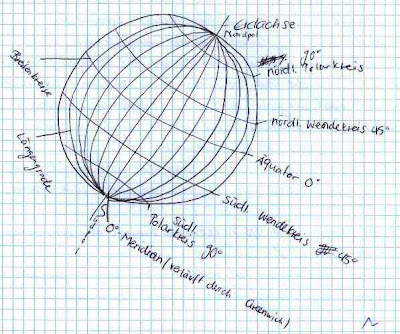 Erdachse
Nordpol
90°
nördl. Polarkreis
Breitenkreise
nördl. Wendekreis 45°
Längengrade
Äquator 0°
Südl. Wendekreis 45°
S
Südl.
Polarkreis 90°
0°-Meridian (verläuft durch Greenwich)